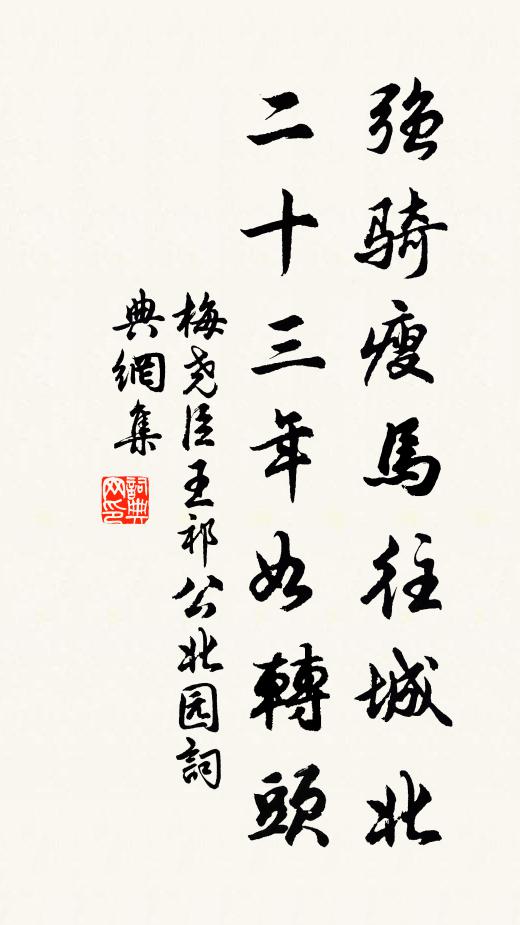 强骑瘦馬往城北
二十三年如轉頭
梅尧臣王祁公北园詞
典網集
詞典网印